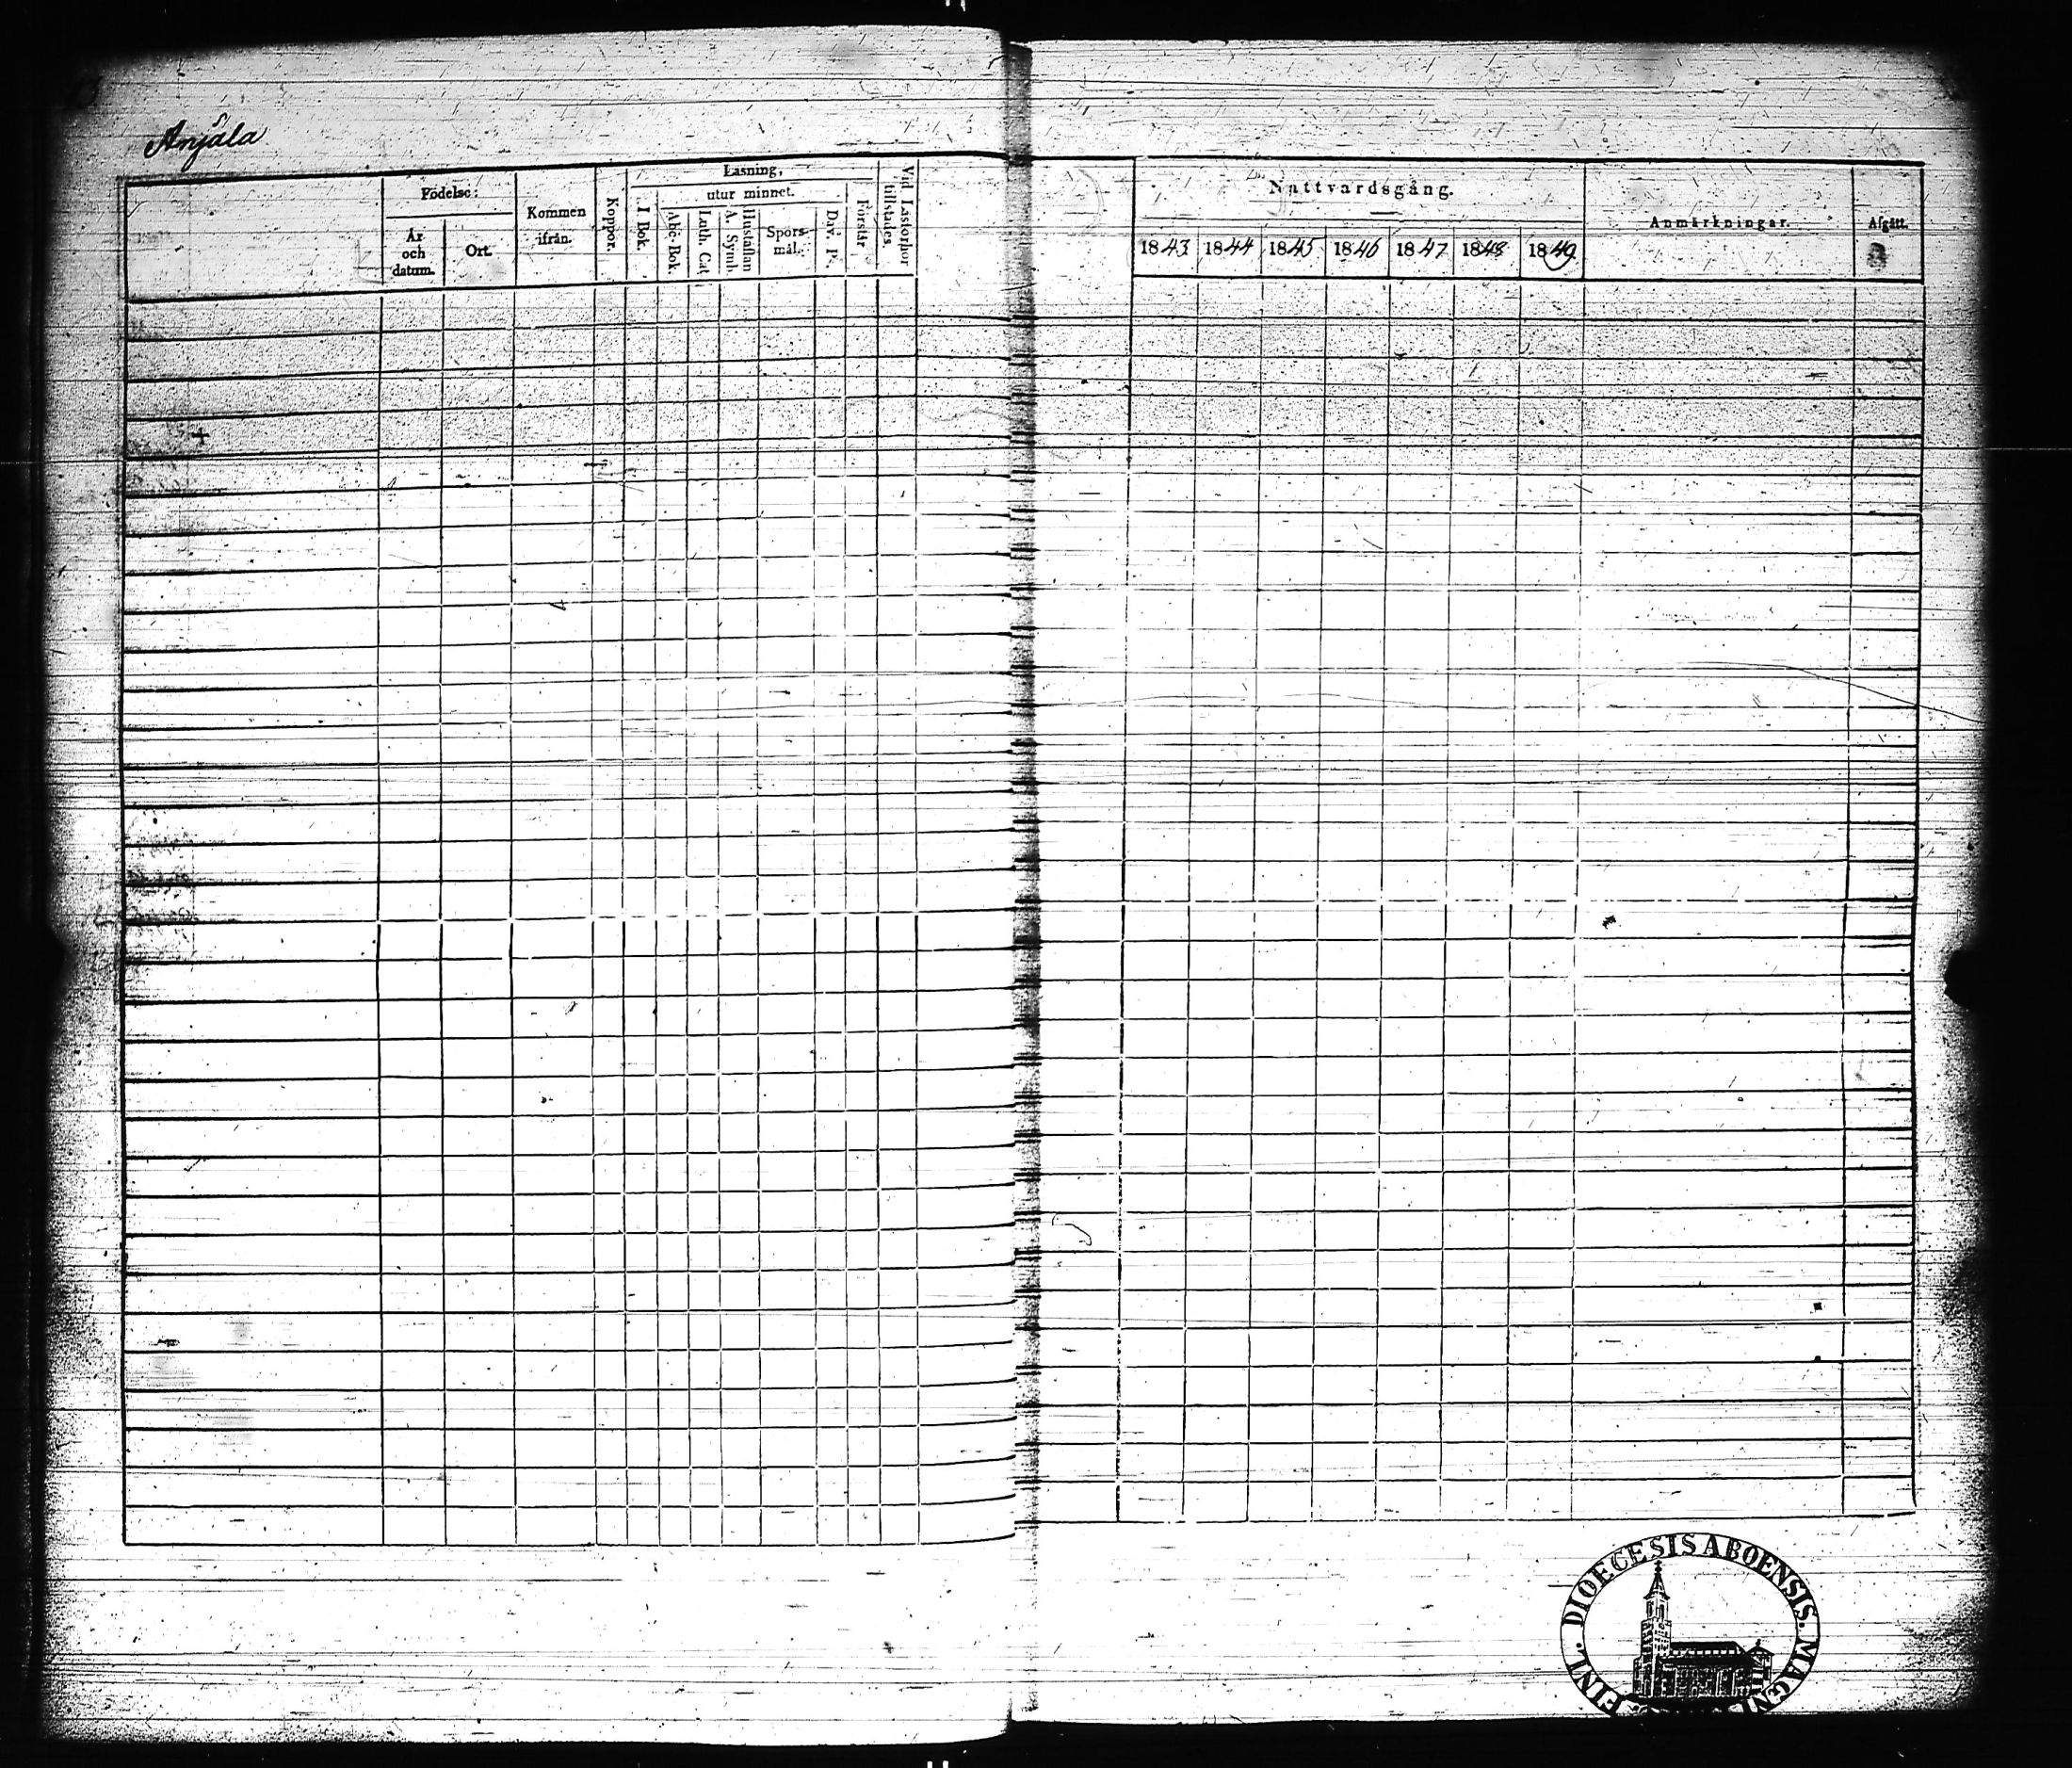 Anjala
Läsning,
Födelse:
År och datum.
Ort.
Kommen ifrån.
Koppor.
I Bok.
utur minnet.
Abc-Bok.
Luth. Cat.
A. Symb.
Hustaflan
Spörs-mål.
Dav. P.
Förstår
Vid Läsförhör tillstädes.
Nattvardsgång.
1843 1844 1845 1846 1847 1848 1849
Anmärkningar.
Afgått.
FINL. DIOECESIS ABOENSIS. MAGNI